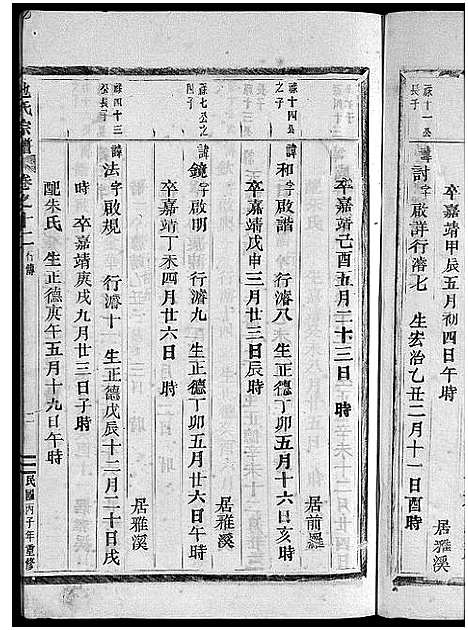 祿十一公
長子
諱討字啟詳行濬七　生宏治乙丑二月十一日酉時
居雅溪
卒嘉靖甲辰五月初四日午時
卒嘉靖己酉五月二十三日　時
祿十四公
之子
諱和字啟諧　行濬八　生正德丁卯五月十六日亥時
居前
卒嘉靖戊申三月廿三日辰時
祿七公之
諱鏡字啟明　行濬九　生正德丁卯五月廿六日午時
居雅溪
卒嘉靖丁未四月廿六日　時
祿四十三
公長子
諱法字啟規　行濬十　生正德戊辰十二月二十日戌
居雅溪
時　卒嘉靖庚戌九月廿三日子時
配朱氏　生正德庚午五月十九日午時
氏宗譜
卷之十二
行傳
民國丙子年重修